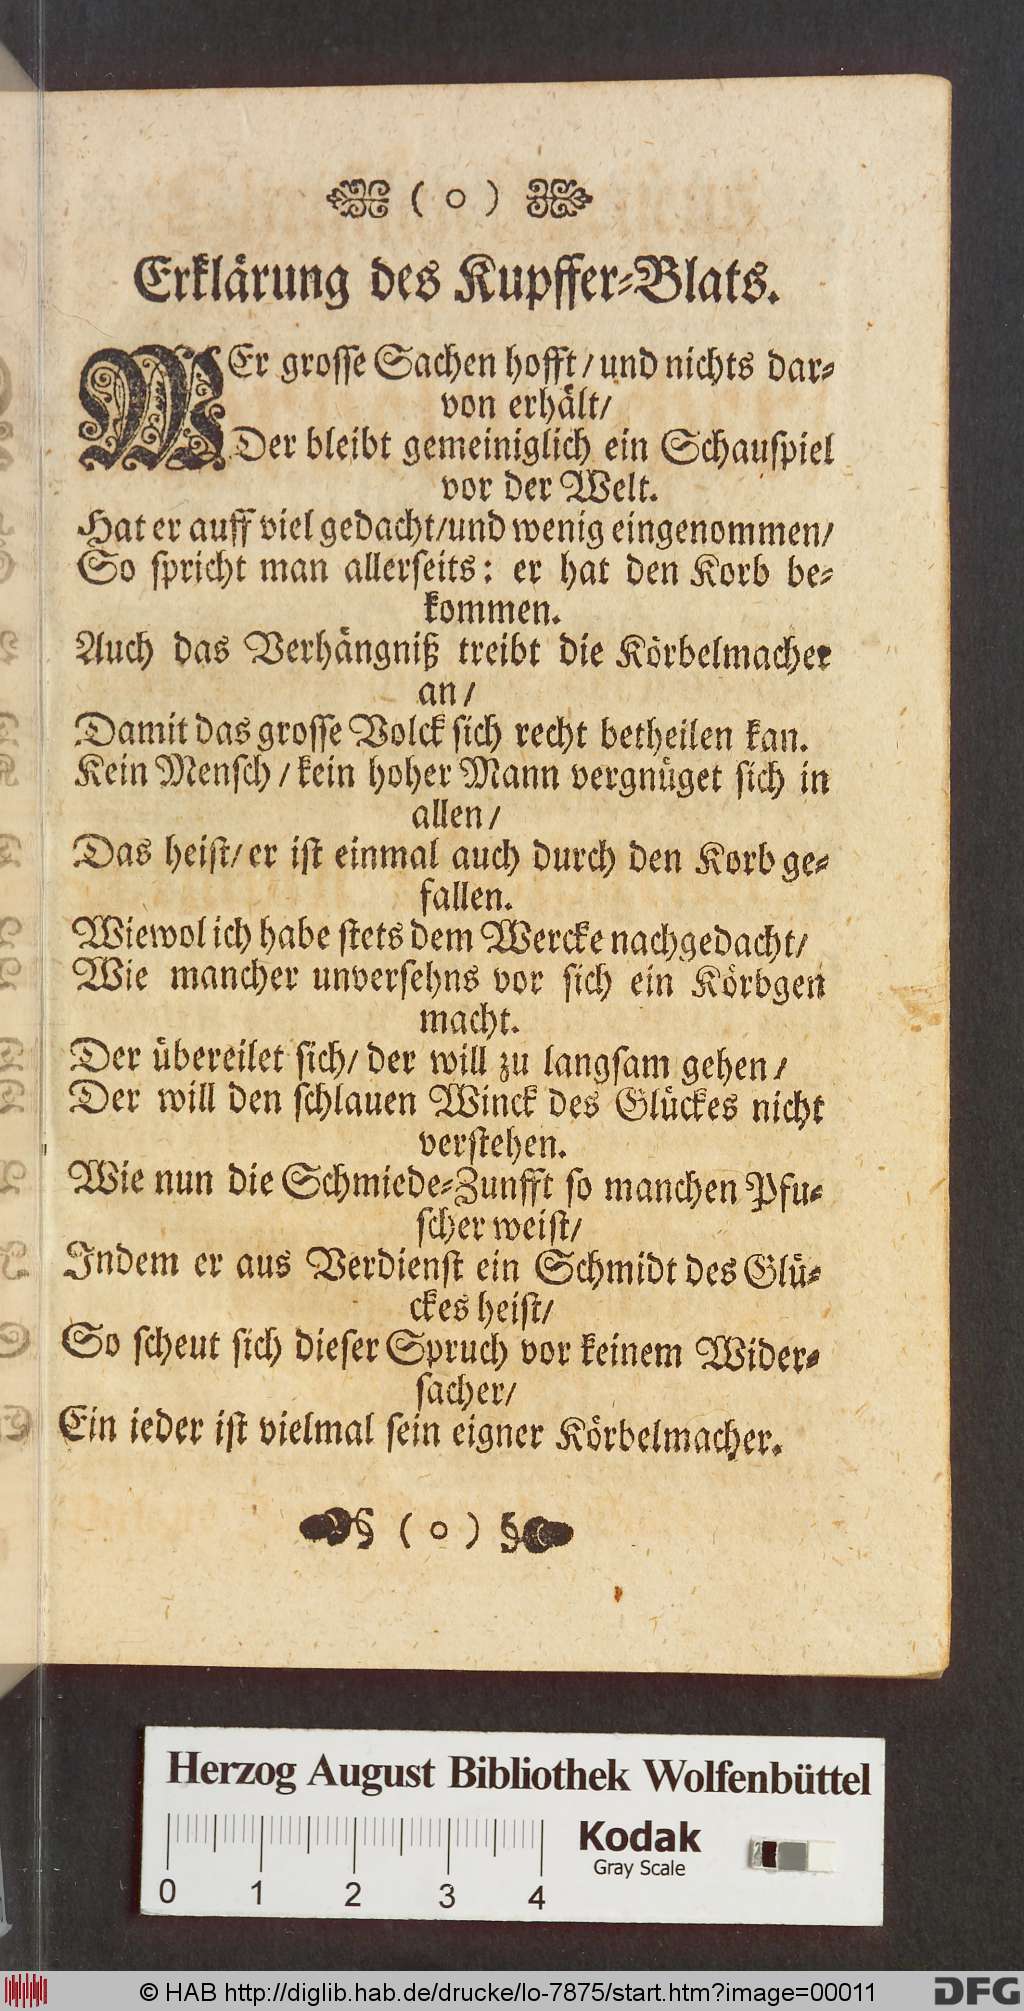 ( o )
Erklärung des Kupffer-Blats.
WEr grosse Sachen hofft/ und nichts dar-
von erhält/
Der bleibt gemeiniglich ein Schauspiel
vor der Welt.
Hat er auff viel gedacht/und wenig eingenommen/
So spricht man allerseits: er hat den Korb be-
kommen.
Auch das Verhängniß treibt die Körbelmacher
an/
Damit das grosse Volck sich recht betheilen kan.
Kein Mensch/ kein hoher Mann vergnüget sich in
allen/
Das heist/ er ist einmal auch durch den Korb ge-
fallen.
Wiewol ich habe stets dem Wercke nachgedacht/
Wie mancher unversehns vor sich ein Körbgen
macht.
Der übereilet sich/ der will zu langsam gehen/
Der will den schlauen Winck des Glückes nicht
verstehen.
Wie nun die Schmiede-Zunfft so manchen Pfu-
scher weist/
Indem er aus Verdienst ein Schmidt des Glü-
ckes heist/
So scheut sich dieser Spruch vor keinem Wider-
sacher/
Ein ieder ist vielmal sein eigner Körbelmacher.
§ ( o ) §
Herzog August Bibliothek Wolfenbüttel
Kodak
Gray Scale
0 1 2 3 4
© HAB http://diglib.hab.de/drucke/lo-7875/start.htm?image=00011
DFG